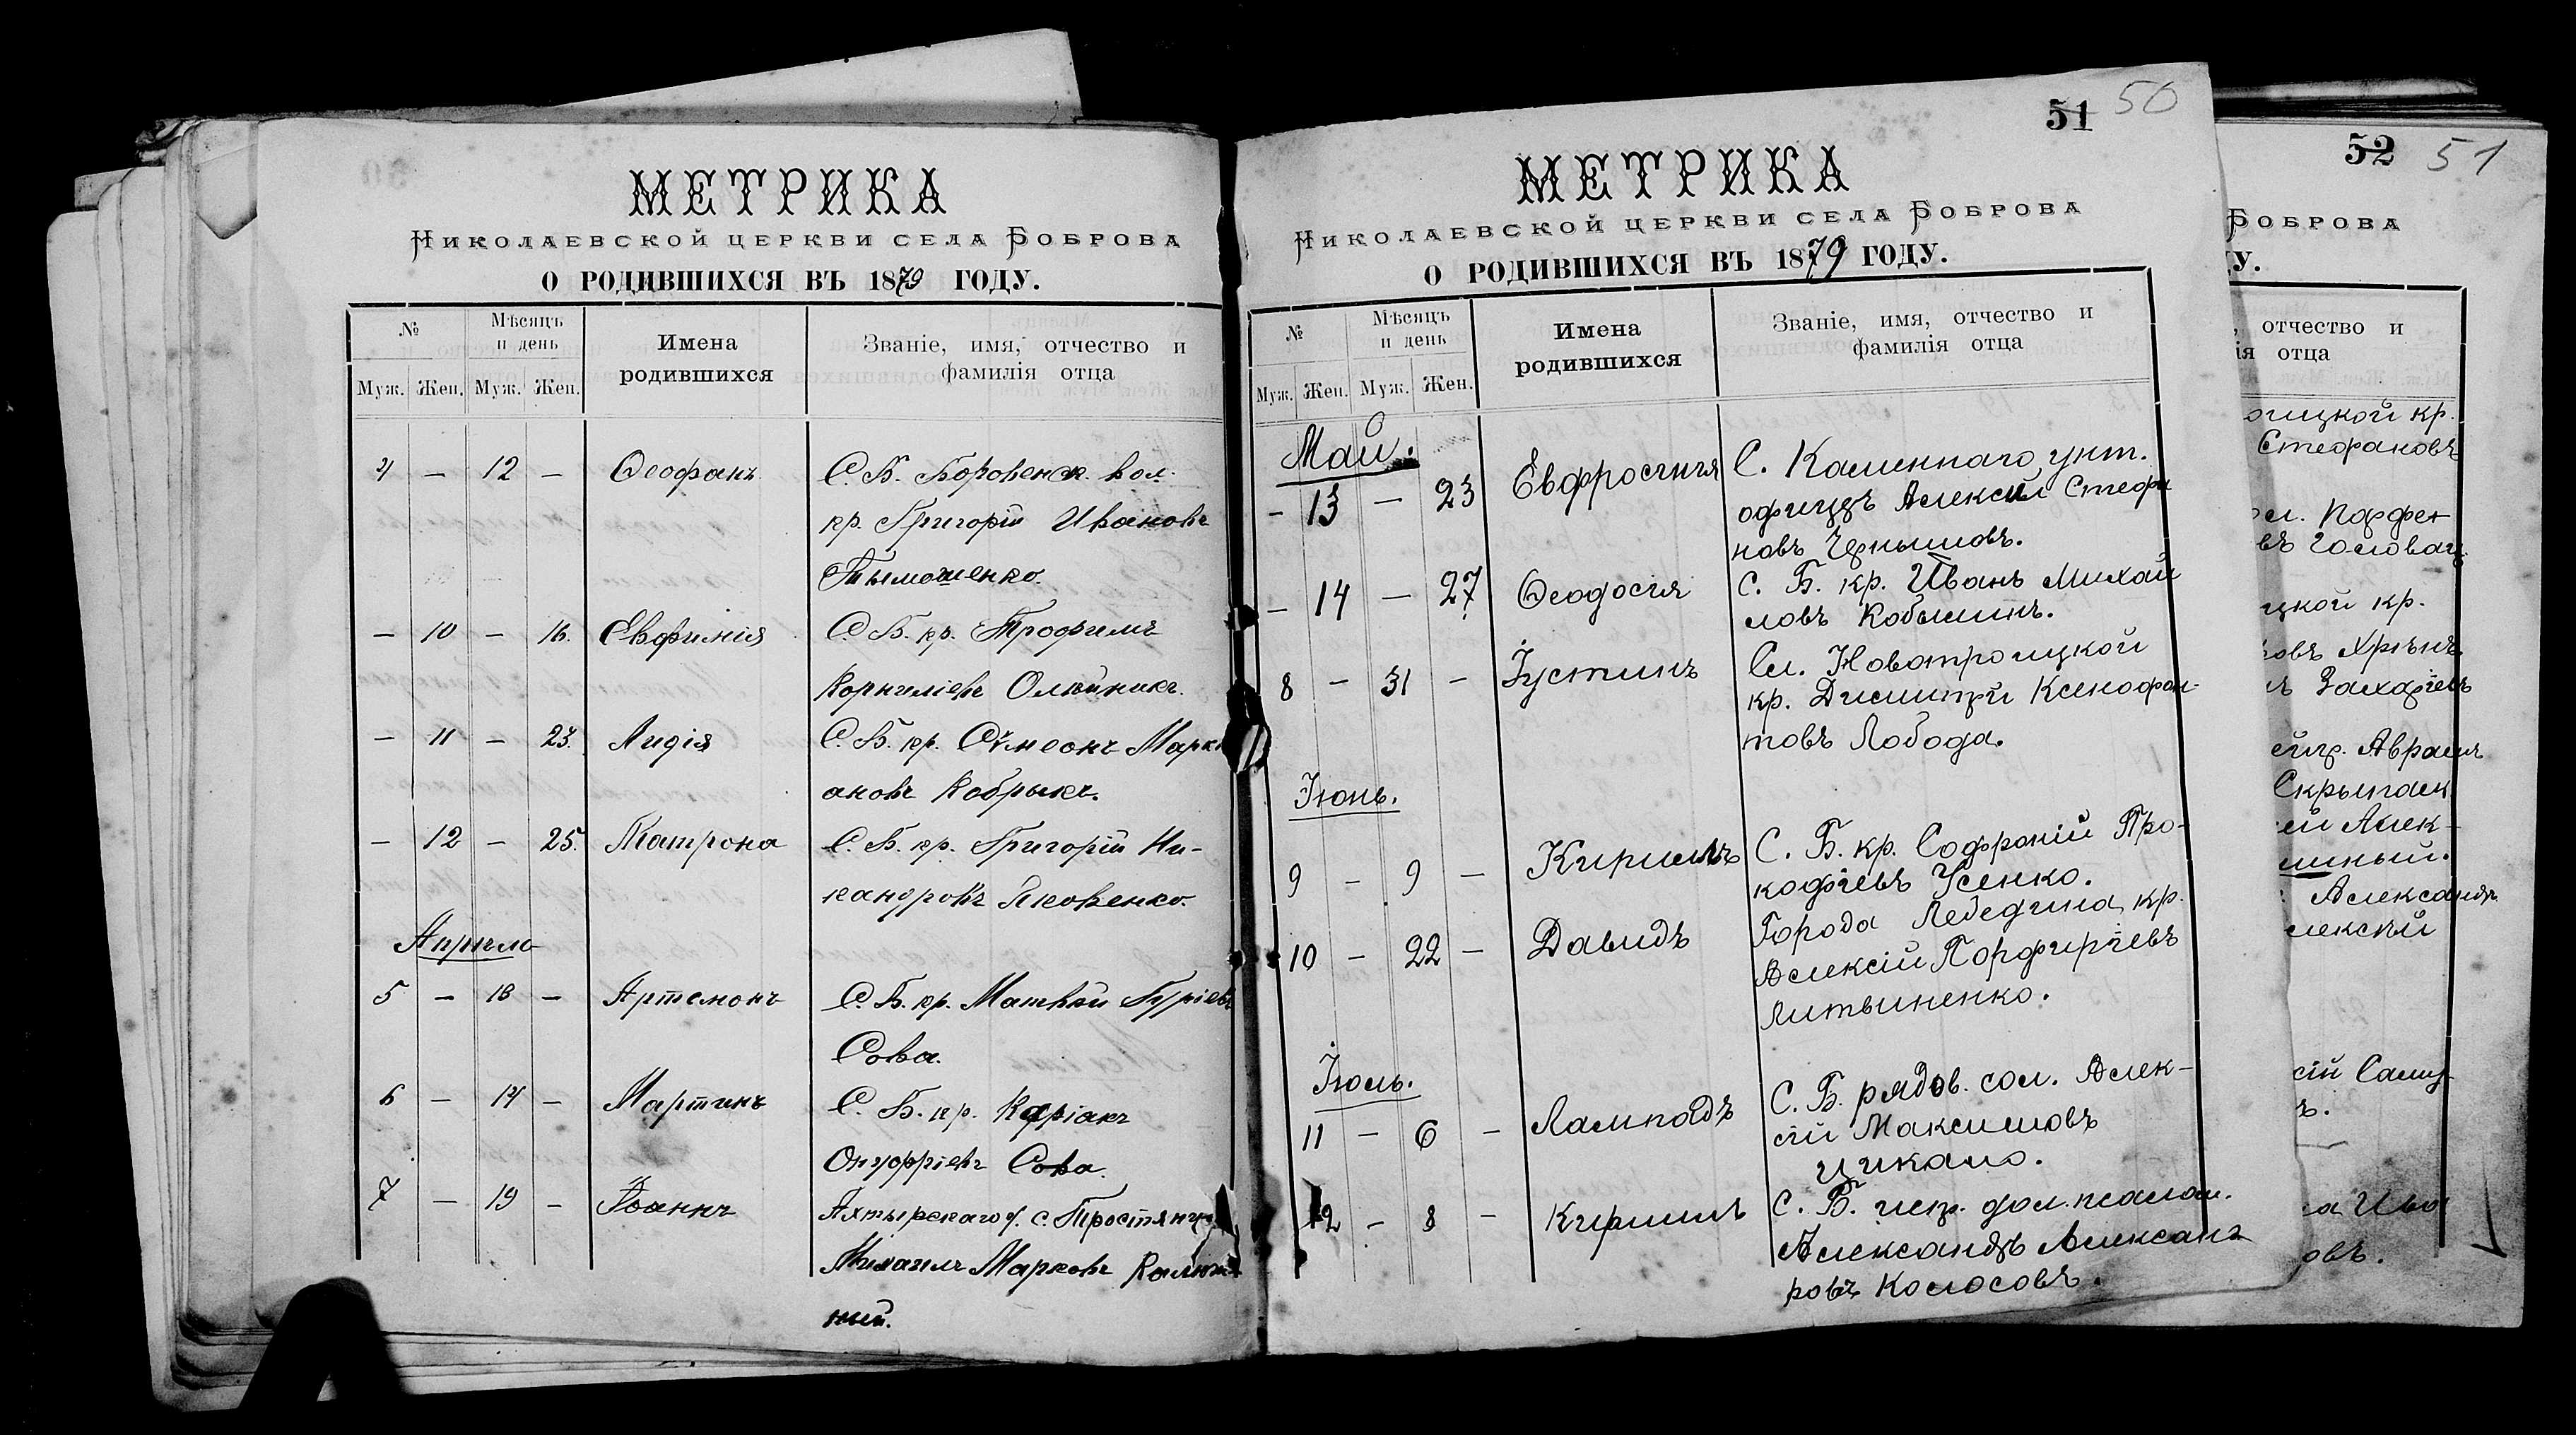 МЕТРИКА
НИКОЛАЕВСКОЙ ЦЕРКВИ СЕЛА БОБРОВА
О РОДИВШИХСЯ ВЪ 1879 ГОДУ.
№ Мѣсяцъ и день Имена родившихся Званіе, имя, отчество и фамилія отца
Муж. Жен. Муж. Жен.
4 — 12 — Ѳеофанъ С. Б. Боровенск. вол.
кр. Григорій Ивановъ
Тымошенко.
— 10 — 16. Евфимія С. Б. кр. Трофимъ
Корниліевъ Олѣйникъ.
— 11 — 23. Лидія С. Б. кр. Сѵмеонъ Марки
ановъ Кобрыкъ.
— 12 — 25. Матрона С. Б. кр. Григорій Ни-
кандровъ Яковенко.
Апрѣль
5 — 13 — Артемонъ С. Б. кр. Матвѣй Гуріевъ
Сова.
6 — 14 — Мартинъ С. Б. кр. Киріакъ
Онуфріевъ Сова.
7 — 19 — Іоаннъ Ахтырскаго у. с. Тростянца
Михаилъ Марковъ Калюж
ный.
51 50
МЕТРИКА
НИКОЛАЕВСКОЙ ЦЕРКВИ СЕЛА БОБРОВА
О РОДИВШИХСЯ ВЪ 1879 ГОДУ.
№ Мѣсяцъ и день Имена родившихся Званіе, имя, отчество и фамилія отца
Муж. Жен. Муж. Жен.
Май.
— 13 — 23 Евфросинія С. Каменнаго унт.
офицръ Алексѣй Стефа
новъ Чернышовъ.
— 14 — 27 Ѳеодосія С. Б. кр. Иванъ Михай
ловъ Кобышинъ.
8 — 31 — Іустинъ Сл. Новотроицкой
кр. Димитрій Ксенофон-
товъ Лобода.
Іюнь.
9 — 9 — Кириллъ С. Б. кр. Софроній Про-
кофіевъ Усенко.
10 — 22 — Давидъ Города Лебедина кр.
Алексій Порфиріевъ
Литвиненко.
Іюль.
11 — 6 — Лампадъ С. Б. рядов. сол. Алек-
сій Максимовъ
Цикало.
12 — 8 — Кириллъ С. Б. испр. дол. псалом.
Александръ Александ
ровъ Колосовъ.
52 51
БОБРОВА
У.
отчество и
ія отца
оицкой кр.
Стефановъ
ол. Парфен
въ Головач
цкой кр.
ковъ Хрѣнъ.
ъ Захаріевъ
ейпр. Аврамъ
Скрыпак
ей Алек-
линый.
Александръ
лексѣй
сій Саму-
ъ.
на Ива
овъ.